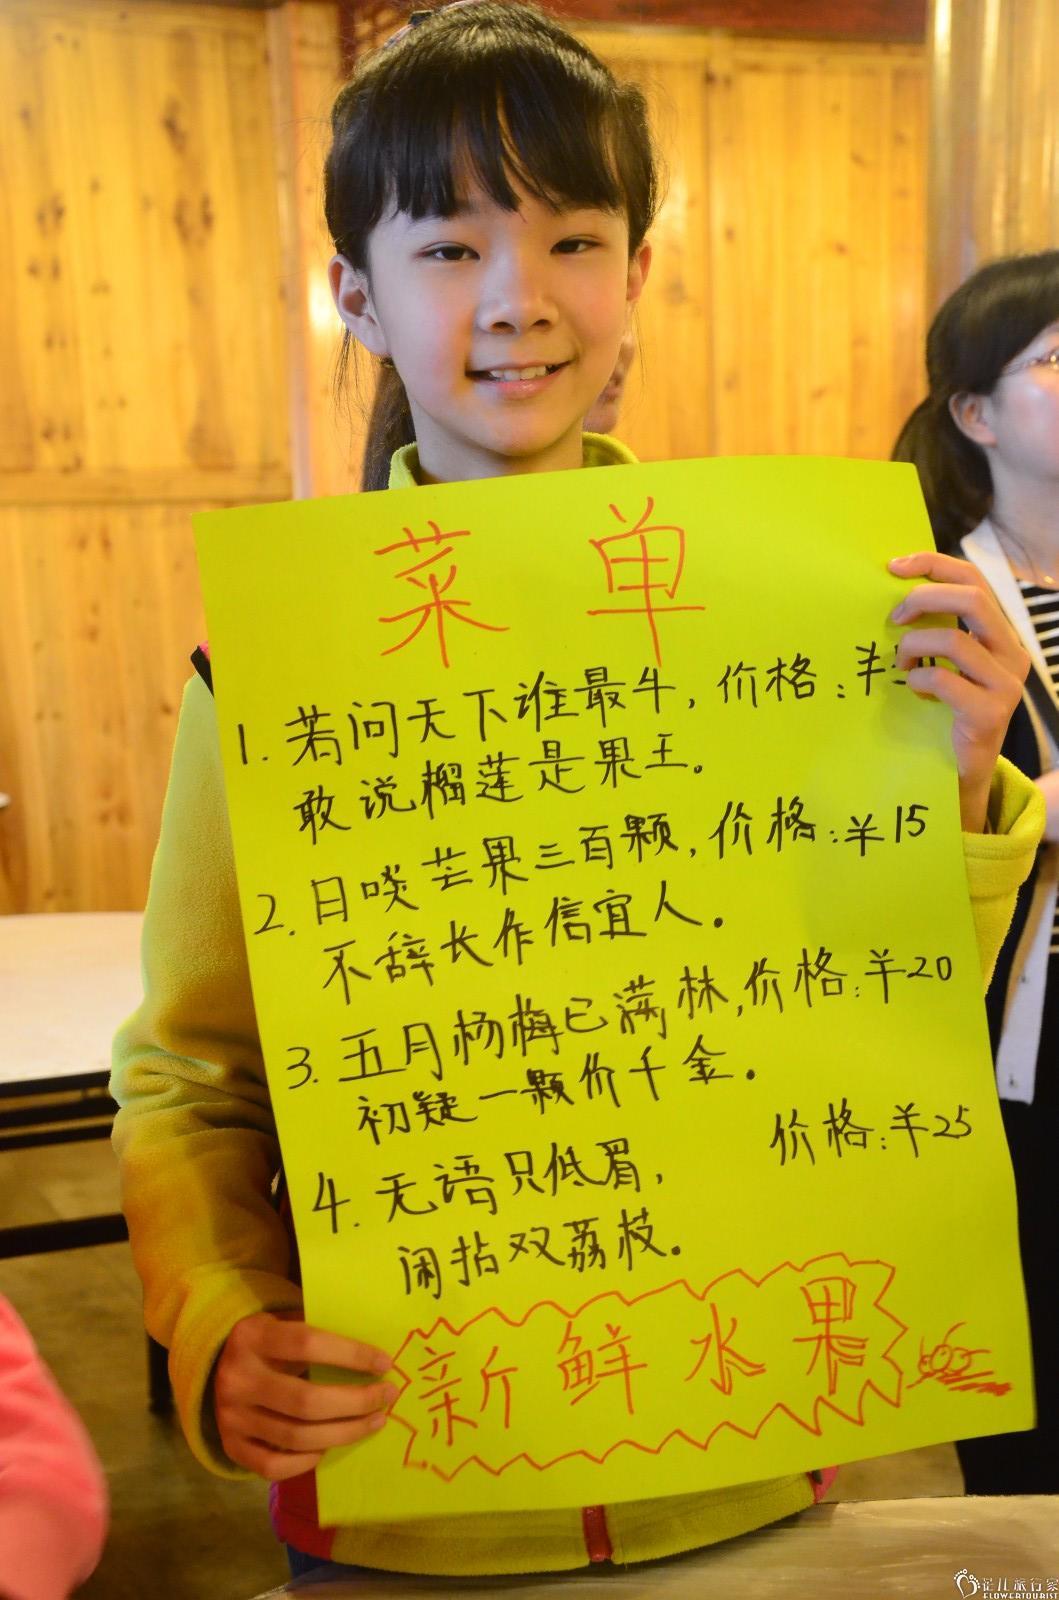 菜单
1. 若问天下谁最牛, 价格:羊
敢说榴莲是果王。
2. 日啖芒果三百颗, 价格:羊15
不辞长作信宜人。
3. 五月杨梅已满林, 价格:羊20
初疑一颗价千金。
4. 无语只低眉, 价格:羊25
闲拈双荔枝。
新鲜水果
花儿旅行家
FLOWERTOURIST